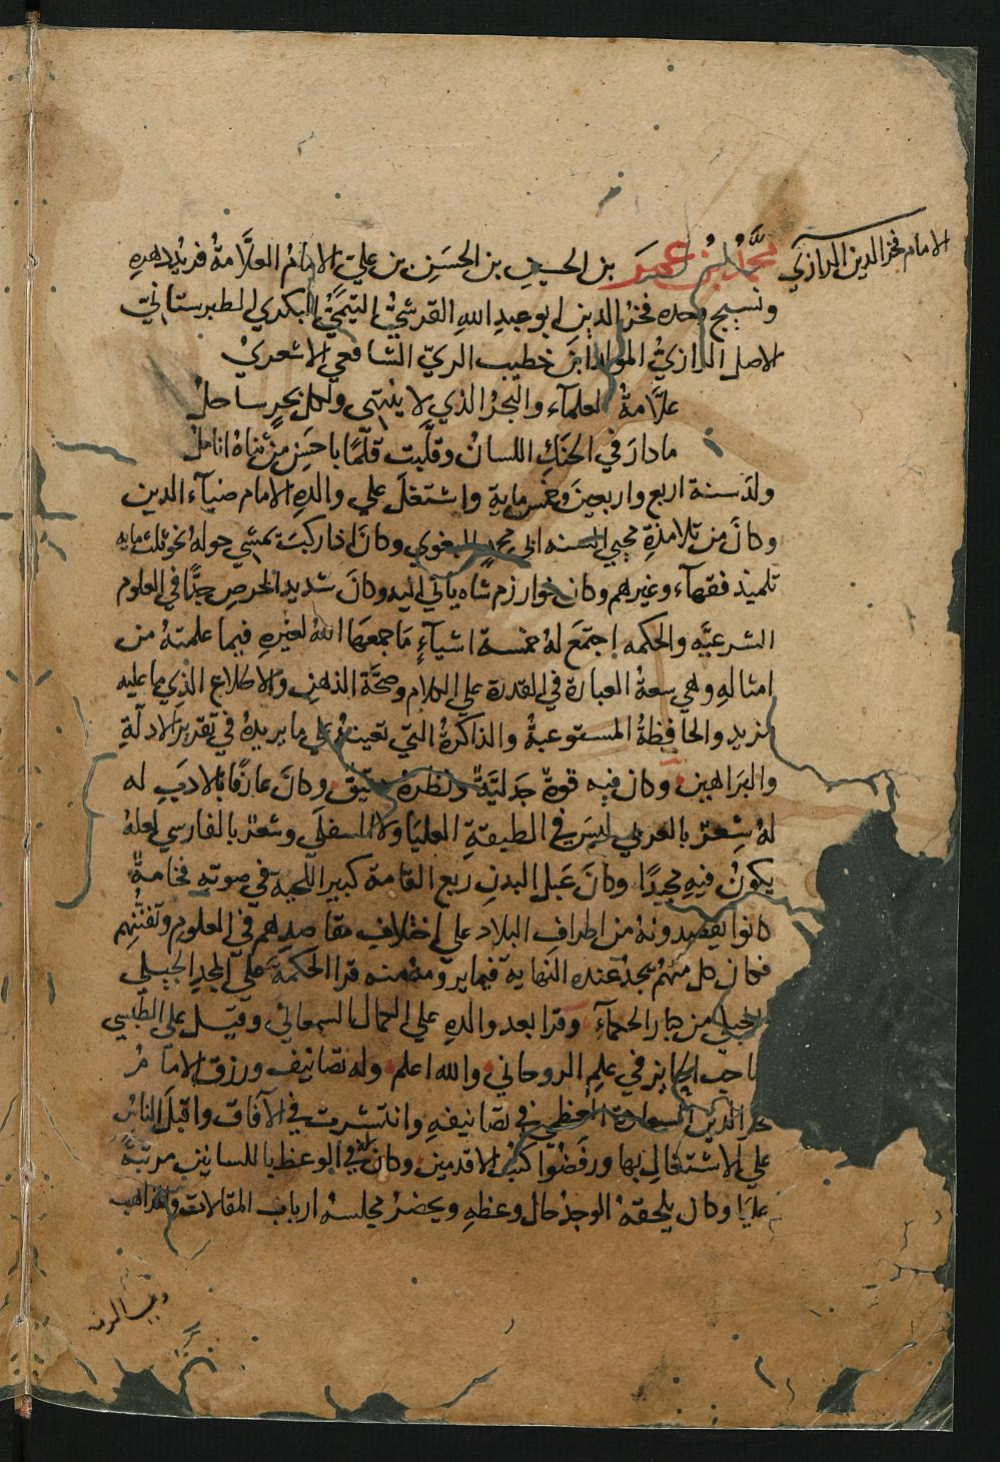 الامام فخر الدين الرازي
محمد بن عمر بن الحسين بن الحسن بن علي الامام العلامة فريد دهره
ونسيج وحده فخر الدين ابو عبد الله القرشي التيمي البكري الطبرستاني
الاصل الرازي المولد ابن خطيب الري الشافعي الاشعري
علامة العلمآء والبحر الذي لا ينتهي ولكل بحر ساحل
ما دار في الحنك اللسان وقلبت قلما باحسن من ثناه انامل
ولد سنة اربع واربعين وخمس ماية واشتغل علي والده الامام ضيآء الدين
وكان من تلامذة محيي السنه ابي محمد البغوي وكان اذا ركب تمشي حوله نحو ثلث مايه
تلميذ فقهآء وغيرهم وكان خوارزم شاه ياتي اليه وكان شديد الحرص جدا في العلوم
الشرعيه والحكمه اجتمع له خمسة اشيآء ما جمعها الله لغيره فيما علمته من
امثاله وهي سعة العبارة في القدرة علي الكلام وصحة الذهن والاطلاع الذي ما عليه
مزيد والحافظة المستوعبة والذاكرة التي تعينه علي ما يريده في تقرير الادلة
والبراهين وكان فيه قوة جدلية ونظره دقيق وكان عارفا بالادب له
له شعر بالعربي ليس في الطبقة العليا ولا السفلي وشعر بالفارسي لعله
يكون فيه مجيدا وكان عبل البدن ربع القامة كبير اللحية في صوته فخامة
كانوا يقصدونه من اطراف البلاد علي اختلاف مقاصدهم في العلوم وتفننهم
فكان كل منهم يجد عنده النهاية فيما يرومه منه قرا الحكمة علي المجد الجيلي
والجيلي من كبار الحكمآء وقرا بعد والده علي الكمال السمعاني وقيل علي الطبسي
صاحب الحايز في علم الروحاني والله اعلم وله تصانيف ورزق الامام
فخر الدين السعادة العظمي في تصانيفه وانتشرت في الآفاق واقبل الناس
علي الاشتغال بها ورفضوا كتب الاقدمين وكان له في الوعظ باللسانين مرتبة
عليا وكان يلحقه الوجد حال وعظه ويحضر مجلسه ارباب المقالات والمذاهب